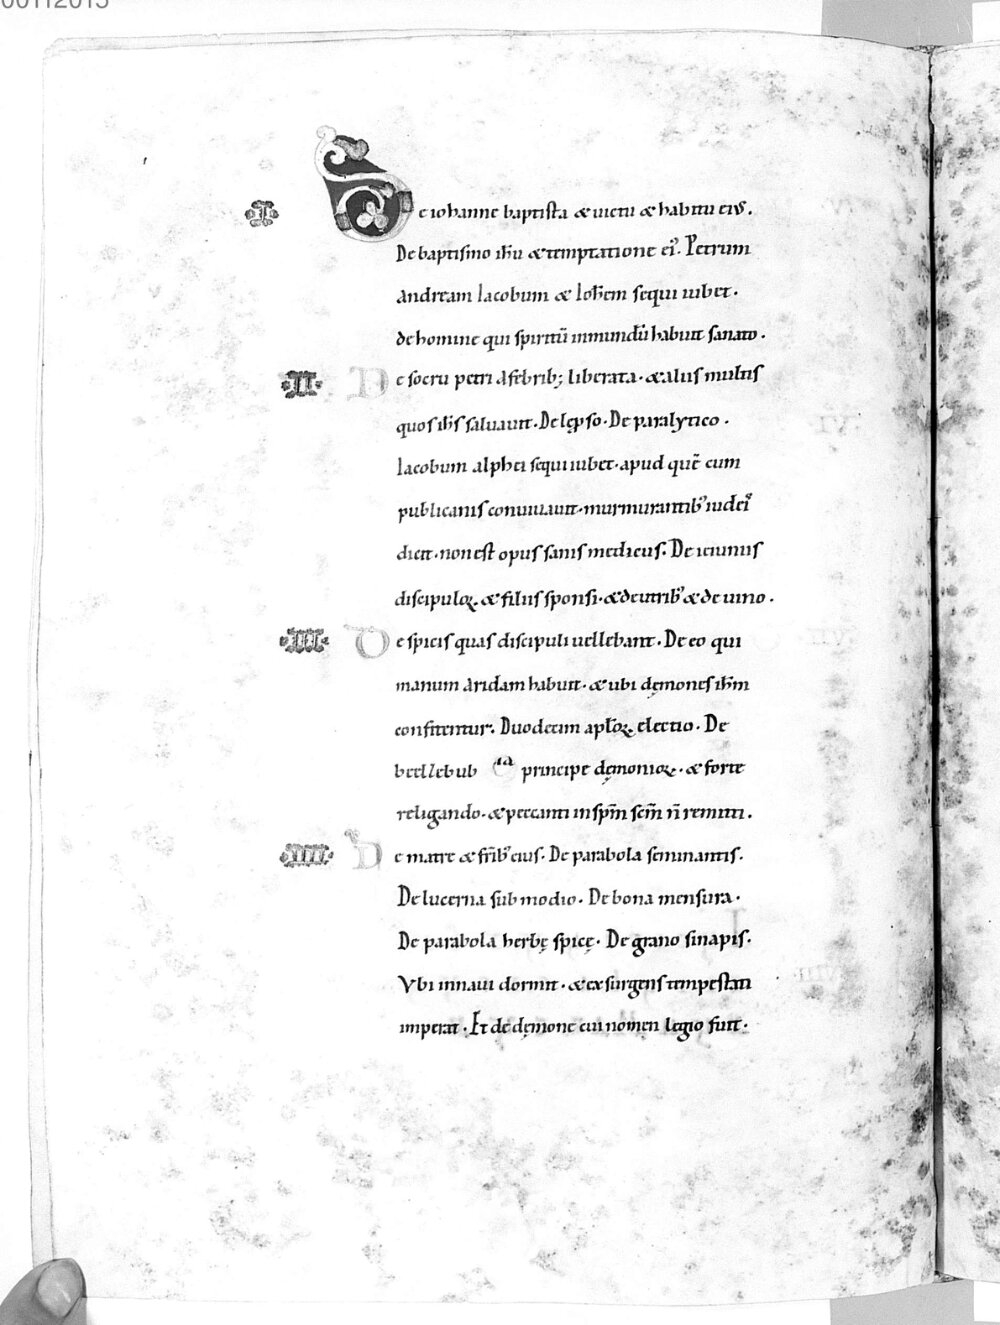 00112015
I De iohanne baptista & uictu & habitu eiꝰ.
De baptismo ih̅u & temptatione eiꝰ. Petrum
andream Iacobum & Ioh̅em sequi iubet.
de homine qui spiritū inmundū habuit sanato.
II De socru petri a febrib; liberata. & aliis multis
quos ih̅s saluauit. De lęproso. De paralytico.
Iacobum alphei sequi iubet. apud quē cum
publicanis conuiuauit. murmurantibꝰ iudeiſ
dicit. non est opus sanis medicus. De ieiuniis
discipuloꝝ. & filiis sponsi. & de utribꝰ & de uino.
III De spicis quas discipuli uellebant. De eo qui
manum aridam habuit. & ubi dęmones ih̅m
confitentur. Duodecim apl̅oꝝ electio. De
beelzebub principe dęmonioꝝ. & forte
religando. & peccanti in sp̅m sc̅m n̅ remitti.
IIII De matre & fr̅ibꝰ eius. De parabola seminantis.
De lucerna sub modio. De bona mensura.
De parabola herbę spicę. De grano sinapis.
Vbi in naui dormit. & exsurgens tempestati
imperat. Et de dęmone cui nomen legio fuit.